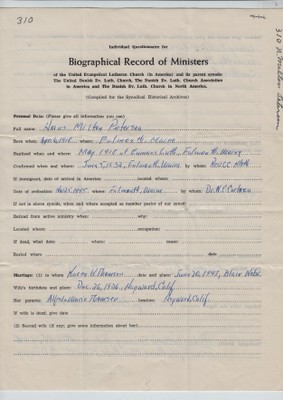 310
310 H. Milton Petersen
Individual Questionnaire for
Biographical Record of Ministers
of the United Evangelical Lutheran Church (in America) and its parent synods:
The United Danish Ev. Luth. Church, The Danish Ev. Luth. Church Association
in America and The Danish Ev. Luth. Church in North America.
(Compiled for the Synodical Historical Archives)
Personal Data: (Please give all information you can)
Full name: Hans Milton Petersen
Born when: where: Falmouth, Maine
Baptized when and where: May 1918 at Emmaus Luth., Falmouth, Maine
Confirmed when and where: June 5, 1932, Falmouth, Maine by whom: Rev.
If immigrant, date of arrival in America: located where:
Date of ordination: where: Falmouth, Maine by whom: Dr. N.C. Carlsen
If not in above synods, when and where accepted as member pastor of our synod:
Retired from active ministry when: why:
Located where: occupation:
If dead, what date: where: cause:
Buried where date
Marriage: (1) to whom Karen V. Thomsen date and place: June 20, 1945, Blair, Nebr.
Wife's birthday and place: Dec. 26, 1920, Hayward, Calif.
Her parents: Thomsen location: Hayward, Calif.
If wife is dead, give date
(2) Second wife (if any; give some information about her).